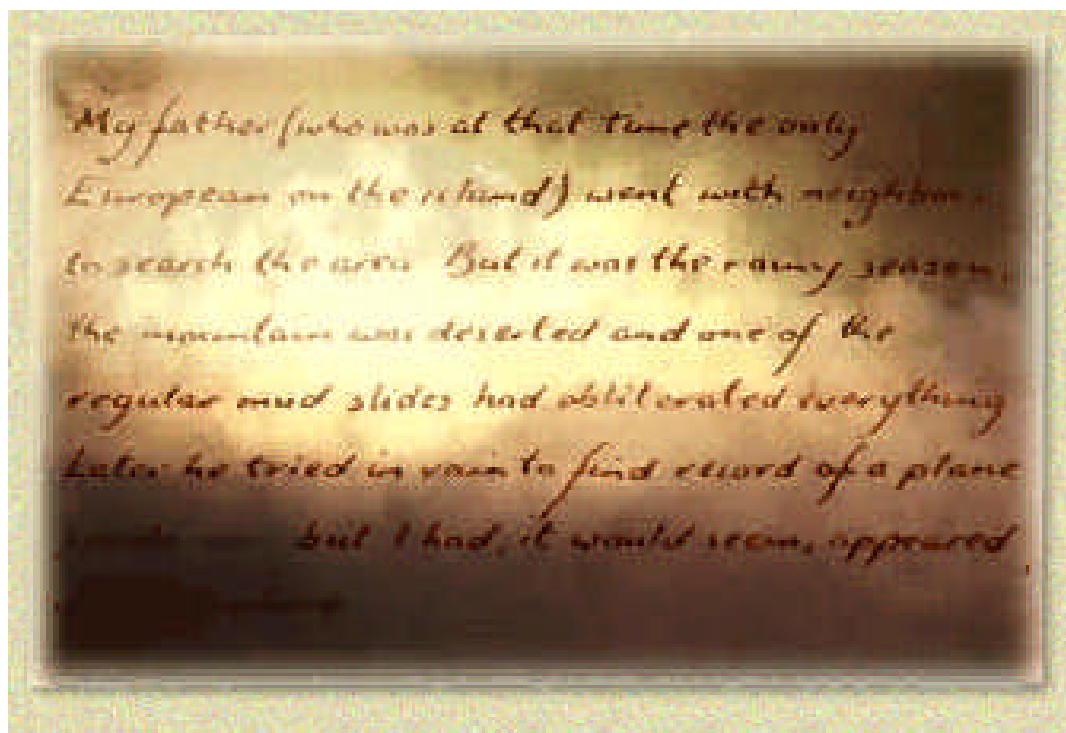 My father (who was at that time the only
European on the island) went with neighbours
to search the area But it was the rainy season,
the mountain was deserted and one of the
regular mud slides had obliterated everything
Later he tried in vain to find record of a plane
but I had, it would seem, appeared